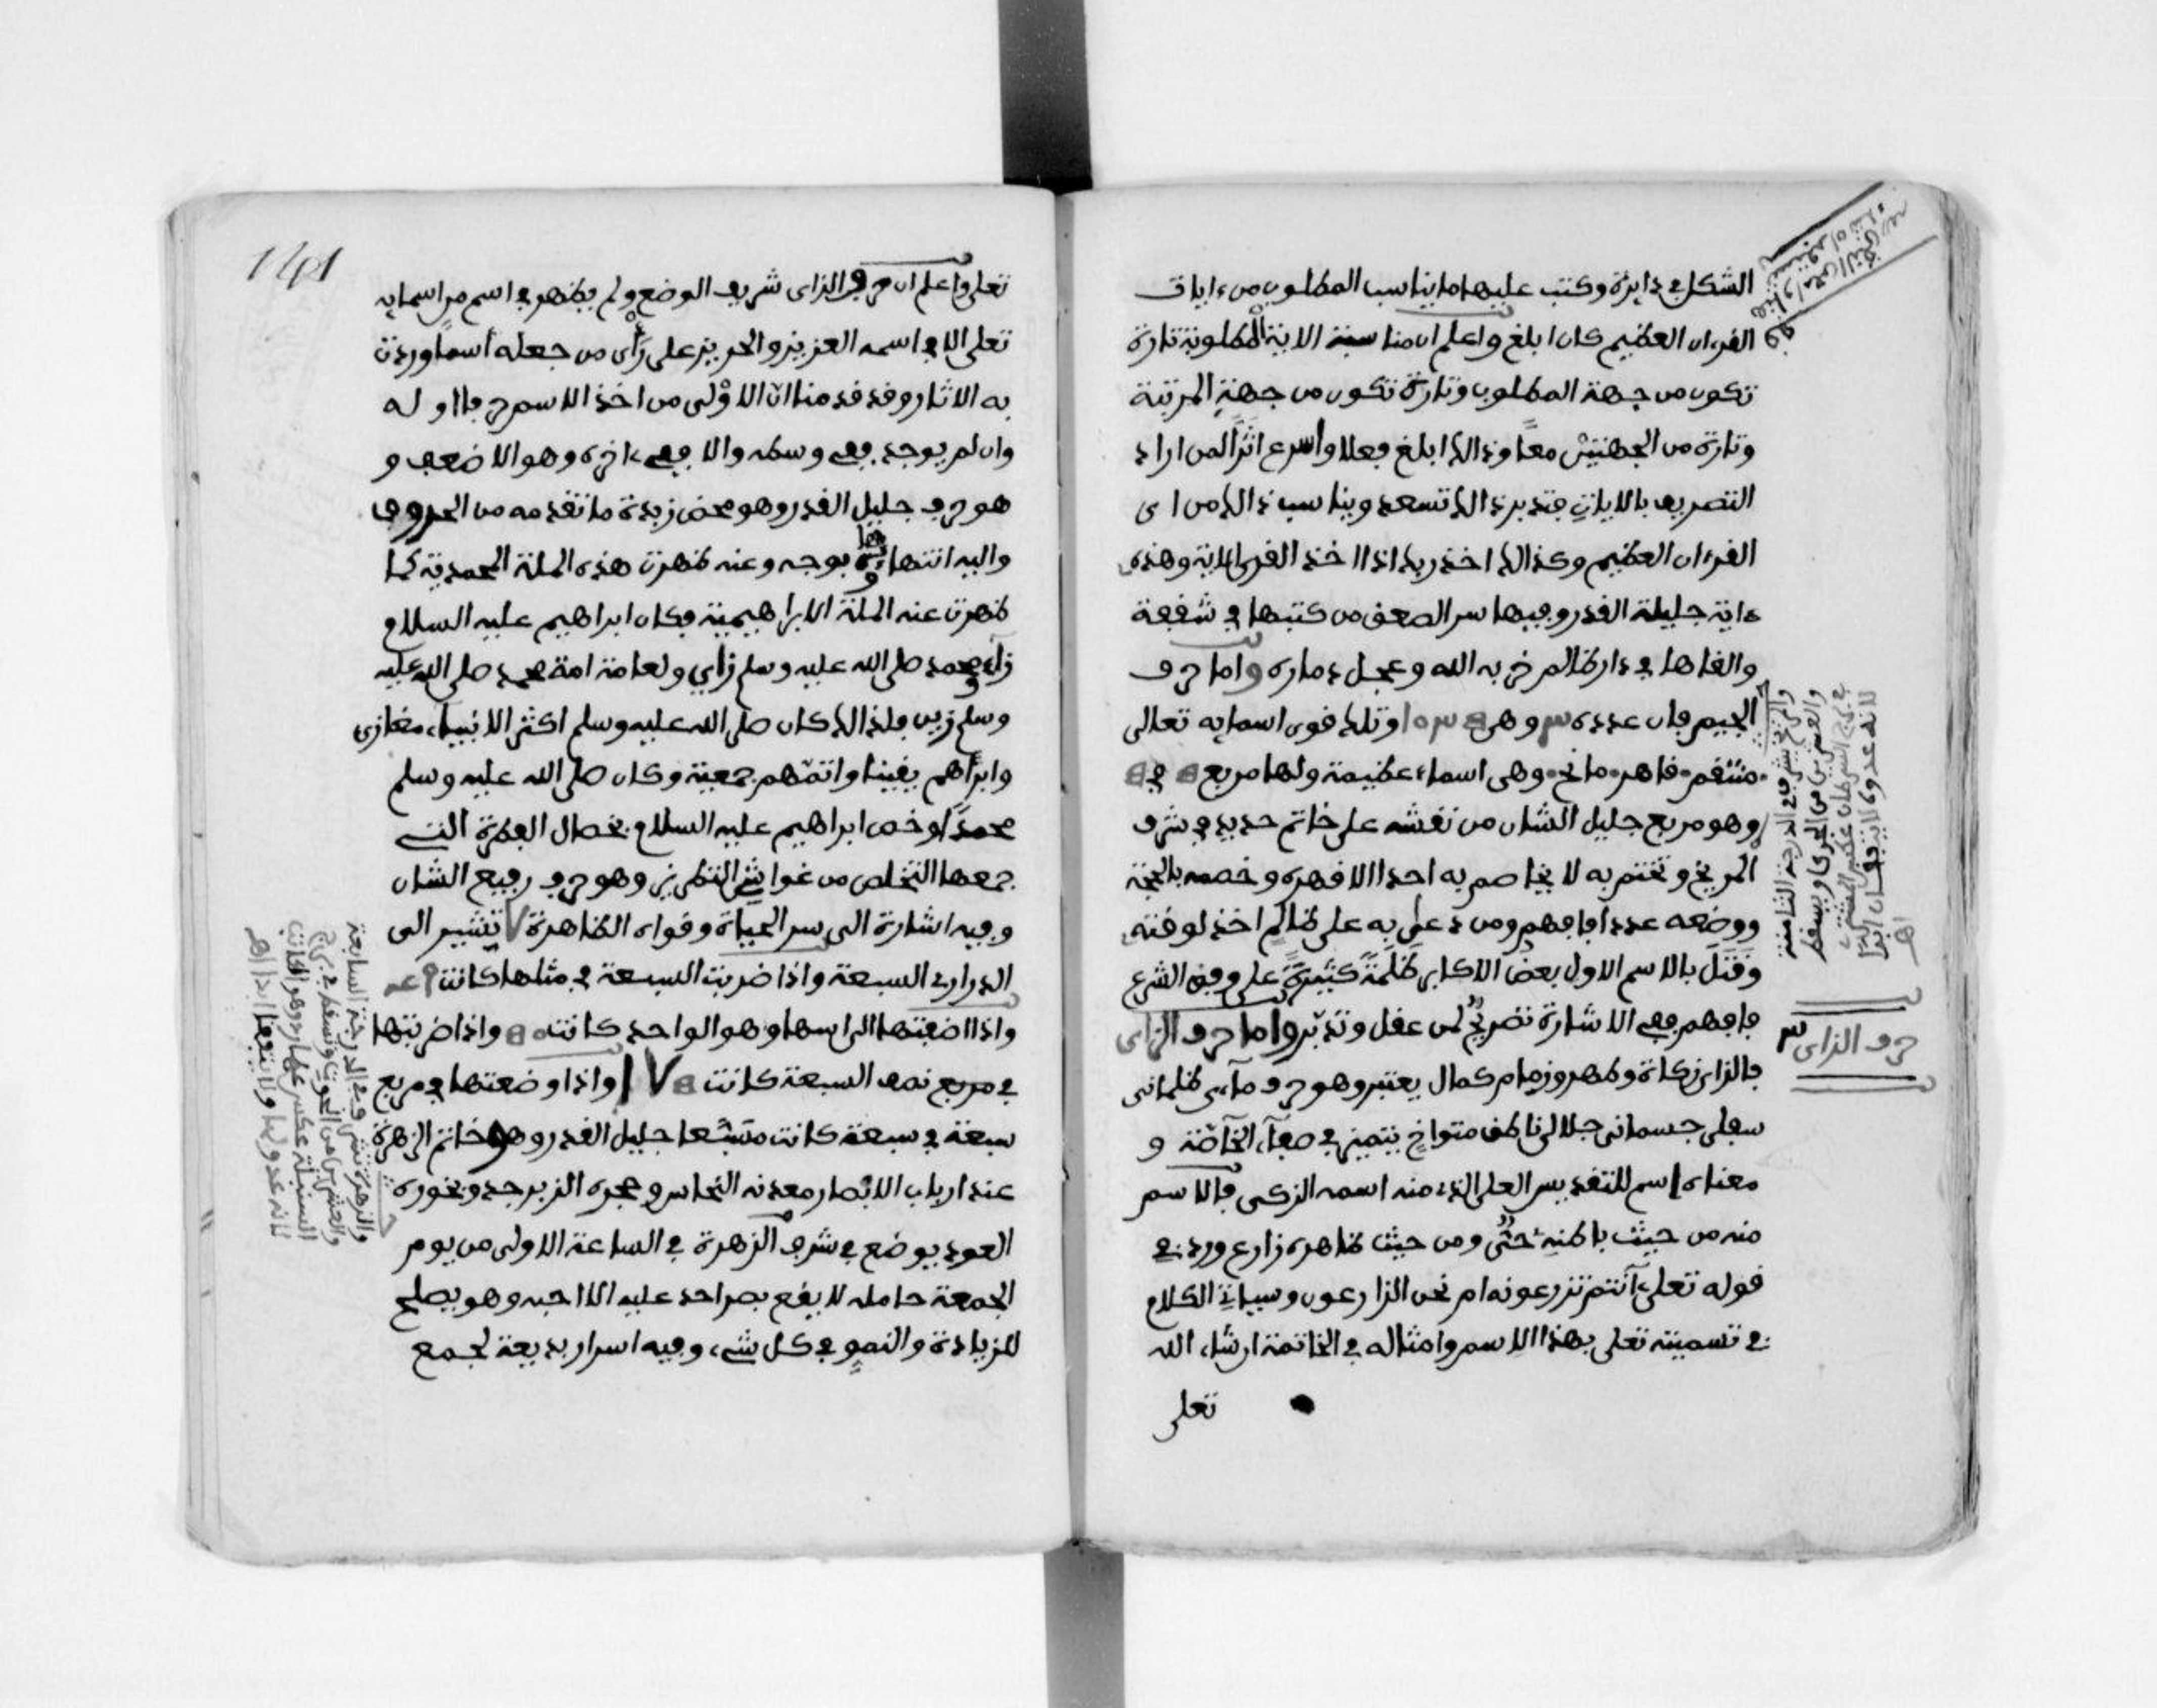 الشكل في دايرة وكتب عليها ما يناسب المطلوب من ءايات
القرءان العظيم كان ابلغ واعلم ان مناسبة الاية المطلوبة تارة
تكون من جهة المطلوب وتارة تكون من جهة المرتبة
وتارة من الجهتين معا وذالك ابلغ فعلا واسرع اثرا لمن اراد
التصريف بالايات فتدبر ذالك تسعد ويناسب ذالك من اى
القرءان العظيم وكذالك اخذ ربك اذا اخذ القرى الاية وهذه
ءاية جليلة القدر وفيها سر الصعق من كتبها في شقفة
والقاها في دار ظالم خربه الله وعجل دماره واما حرف
الجيم فان عدده ٣ وهى وتلك قوى اسمايه تعالى
منتقم قاهر مانع وهى اسماء عظيمة ولها مربع في
وهو مربع جليل الشان من نقشه على خاتم حديد في شرف
المريخ وتختم به لا يخاصم به احدا الا قهره وخصمه بالحجة
ووضعه عددا فافهم ومن دعى به على ظالم اخذ لوقته
وقتل بالاسم الاول بعض الاكابر ظلمة كثيرة على وفق الشرع
فافهم ففي الاشارة تصريح لمن عقل وتدبر واما حرف الزاى
فالزاى زكاة وطهر وزمام كمال يعتبر وهو حرف مآءى ظلمانى
سفلى جسمانى جلالى ناطق متواخ يتميز في صفآء الخآصة و
معناه اسم للتقديس العلى الذى منه اسمه الزكى فالاسم
منه من حيث باطنه حى ومن حيث ظاهره زارع ورد في
قوله تعلى ءآنتم تزرعونه ام نحن الزارعون وسياتي الكلام
في تسميته تعلى بهذا الاسم وامثاله في الخاتمة ان شاء الله
تعلى
والمريخ شرفه في الدرجة الثامنة
والعشرين من الجدى ويسقط
في برج السرطان عكس المشترى
لانه عدوه لا يتفقان ابدا
اهـ
حرف الزاى
تعلى واعلم ان حرف الزاى شريف الوضع ولم يظهر في اسم من اسمايه
تعلى الا في اسمه العزيز والحريز على رأى من جعله أسما وردت
به الاثار وقد قدمنا ان الاولى من اخذ الاسم حرفا اوله
وان لم يوجد ففي وسطه والا ففي ءاخره وهو الاضعف و
هو حرف جليل القدر وهو محض زبدة ما تقدمه من الحروف
واليه انتهاء بوجه وعنه ظهرت هذه الملة المحمدية كما
ظهرت عنه الملة الابراهيمية فكان ابراهيم عليه السلام
زآء ومحمد صلى الله عليه وسلم زاي ولعامة امة محمد صلى الله عليه
وسلم زين فلذالك كان صلى الله عليه وسلم اكثر الانبياء مغازى
وابرأهم يقينا واتمهم جمعية وكان صلى الله عليه وسلم
محمدا وخص ابراهيم عليه السلام بخصال الفطرة التے
جمعها التخلص من غواشى النظر وهو حرف رفيع الشان
وفيه اشارة الى سر الحياة وقواه الظاهرة ٧ تشير الى
الدرارى السبعة واذا ضربت السبعة في مثلها كانت
واذا اضفتها الى اسها وهو الواحد كانت واذا ضربتها
في مربع نصف السبعة كانت واذا وضعتها في مربع
سبعة في سبعة كانت متسعا جليل القدر وهو خاتم الزهرة
عند ارباب الابصار معدنه النحاس وحجره الزبرجد وبخوره
العود يوضع في شرف الزهرة في الساعة الاولى من يوم
الجمعة حامله لا يقع بصر احد عليه الا احبه وهو يصلح
للزيادة والنمو في كل شيء وفيه اسرار بديعة لجمع
والزهرة تشرف في الدرجة السابعة
والعشرين من الحوت وتسقط في برج
السنبلة عكس عطارد وهو الكاتب
لانه عدو لها ولا يتفقا ابدا اهـ